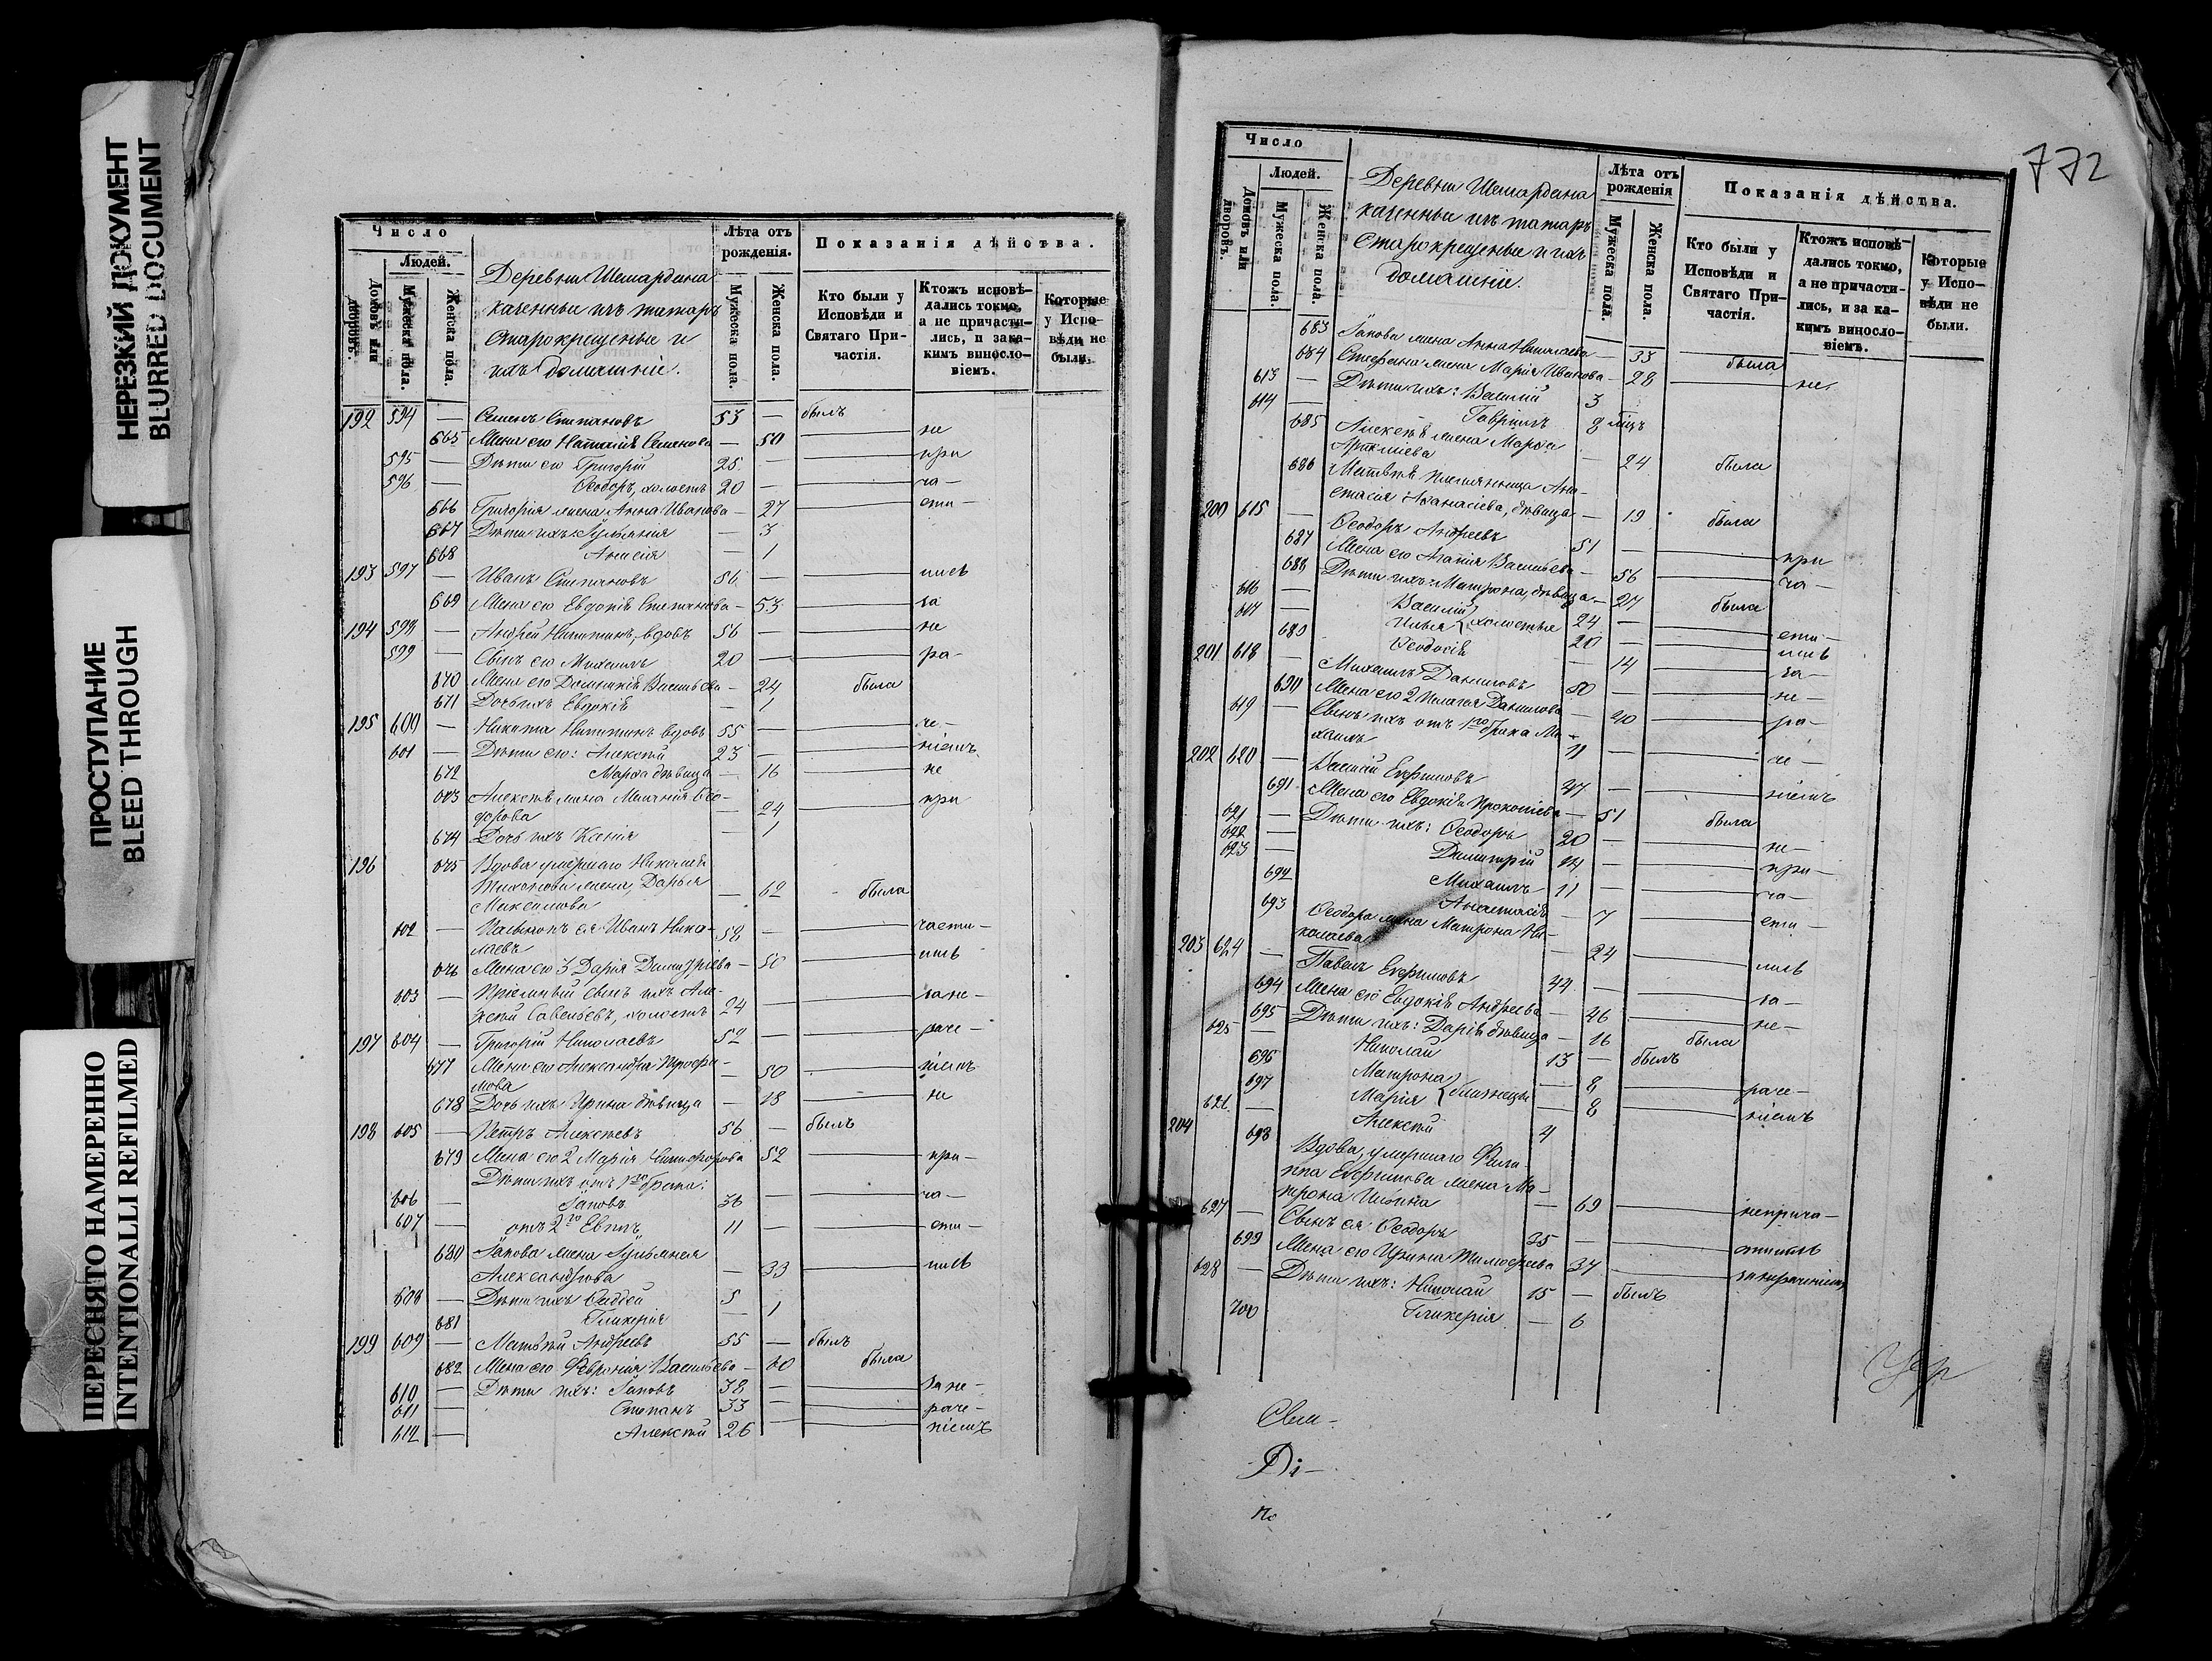 НЕРЕЗКИЙ ДОКУМЕНТ
BLURRED DOCUMENT
ПРОСТУПАНИЕ
BLEED THROUGH
ПЕРЕСНЯТО НАМЕРЕННО
INTENTIONALLI REFILMED
Число
Людей.
Домовъ или дворовъ.
Мужеска пола.
Женска пола.
Деревни Шемардана
казенныи изъ татаръ
старокрещеные и
ихъ домашніе.
Лѣта отъ рожденія.
Мужеска пола.
Женска пола.
Показанія дѣйства.
Кто были у Исповѣди и Святаго Причастія.
Ктожъ исповѣдались токмо, а не причастились, и зака­кимъ винословіемъ.
Которые у Исповѣди не были.
192 594 — Семенъ Степановъ 53 — былъ
665 Жена его Наталія Семенова — 50 не
595 — Дѣти его Григорій 25 — при
596 — Ѳеодоръ, холостъ 20 — ча-
666 Григорія жена Анна Иванова — 27 сти-
667 Дѣти ихъ: Іуліанія — 3
668 Анисія — 1
193 597 — Иванъ Степановъ 56 — лись
669 Жена его Евдокія Степанова — 53 за
194 598 — Андрей Никитинъ, вдовъ 56 — не
599 — Сынъ его Михаилъ 20 — ра-
670 Жена его Домникія Васильева — 24 была
671 Дочь ихъ Евдокія — 1
195 600 — Никита Никитинъ вдовъ 55 — че-
601 — Дѣти его: Алексѣй 23 — ніемъ
672 Марѳа дѣвица — 16 не
673 Алексѣя жена Меланія Ѳео-
дорова — 24 при
674 Дочь ихъ Ксенія — 1
196 675 Вдова умершаго Николая
Тихонова жена, Дарья
Максимова — 62 была
602 — Пасынокъ ея Иванъ Нико-
лаевъ 58 — части-
676 Жена его 3 Дарія Димитріева — 50 лись
603 — Пріемный сынъ ихъ Але-
ксѣй Савельевъ, холостъ 24 за не-
197 604 — Григорій Николаевъ 52 — раче-
677 Жена его Александра Трофи-
мова — 50 ніемъ
678 Дочь ихъ Ирина дѣвица — 18 не
198 605 — Петръ Алексѣевъ 56 — былъ
679 Жена его 2 Марія Никифорова 52 при-
Дѣти ихъ отъ 1го брака:
606 — Іаковъ 36 — ча-
607 — отъ 2го Евтихъ 11 — сти-
680 Іакова жена Іуліанія
Александрова — 33 лись
608 — Дѣти ихъ Ѳаддей 5
681 Гликерія — 1
199 609 — Матѳей Андреевъ 55 — былъ
682 Жена его Февронія Васильева — 60 была
610 — Дѣти ихъ: Іаковъ 38 — за не-
611 — Степанъ 33 — раче-
612 — Алексѣй 26 — ніемъ
772
Число
Людей.
Домовъ или дворовъ.
Мужеска пола.
Женска пола.
Деревни Шемардана
казенныи изъ татаръ
Старокрещеные и ихъ
домашніе.
Лѣта отъ рожденія
Мужеска пола.
Женска пола.
Показанія дѣйства.
Кто были у Исповѣди и Святаго Причастія.
Ктожъ исповѣдались токмо, а не причастились, и за какимъ винословіемъ.
Которые у Исповѣди не были.
683 Іакова жена Анна Николаева — 33 была
684 Степана жена Марія Иванова — 28 не
613 — Дѣти ихъ: Василій 3
614 — Гавріилъ 8 мѣс
685 Алексѣя жена Марѳа
— 24 была
686 Матвѣя племянница Ана-
стасія Аѳанасіева, дѣвица — 19 была
200 615 — Ѳеодоръ Андреевъ 51 — при
687 Жена его Агапія Васильева — 56 ча-
688 Дѣти ихъ: Матрона, дѣвица — 27 была
616 — Василій } холостые 24 — сти-
617 — Илья 20 — лись
689 Ѳеодосія — 14 за-
201 618 — Михаилъ Даниловъ 50 — не-
690 Жена его 2 Пелагея Данилова — 40 ра-
619 — Сынъ ихъ отъ 1го брака Ми-
хаилъ 11 — че-
202 620 — Василій Ефимовъ 47 — ніемъ
691 Жена его Евдокія Прокопіева — 51 была
621 — Дѣти ихъ: Ѳеодоръ 20 — не-
622 — Димитрій 14 — при-
623 — Михаилъ 11 — ча-
692 Анастасія — 7 сти-
693 Ѳеодора жена Матрона Ни-
колаева — 24 лись
203 624 — Павелъ Ефимовъ 44 — за-
694 Жена его Евдокія Андреева — 46 не-
695 Дѣти ихъ: Дарія дѣвица — 16 была
625 — Николай 13 — былъ
696 Матрона } близнецы — 8 раче-
697 Марія — 8 ніемъ
626 — Алексѣй 4
204 698 Вдова, умершаго Фили-
ппа Ефимова жена Ма-
трона Ильина — 69 неприча-
627 — Сынъ ея Ѳеодоръ 35 — стились
699 Жена его Ирина Тимофеева 37 за нераченіемъ
628 — Дѣти ихъ: Николай 15 — былъ
700 Гликерія — 6
Свя-
Ді-
по